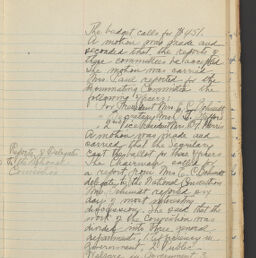 The budget calls for $457.
A motion was made and
seconded that the reports of
these committees be accepted
The motion was carried
Mrs. reported for the
nominating Committee the
following officers:
For President Mrs. E. C. Schmidt
" Secretary Mrs.
" 2 Vice President Mrs.
A motion was made and
carried that the Secretary
cast the ballot for these officers
The Chairman called for
a report from Mrs. E. C. Schmidt
delegate to the National Convention
Mrs. Schmidt reported
day of most
discussion. She said that the
work of the Convention was
divided into three general
departments, 1 Efficiency in
Government, 2 Public
Welfare in Government 3
Reports of Delegates
to the National
Convention